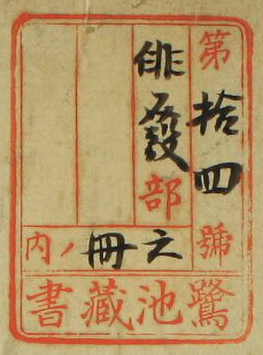 第拾四號
俳發部
六冊ノ内
鷺池藏書